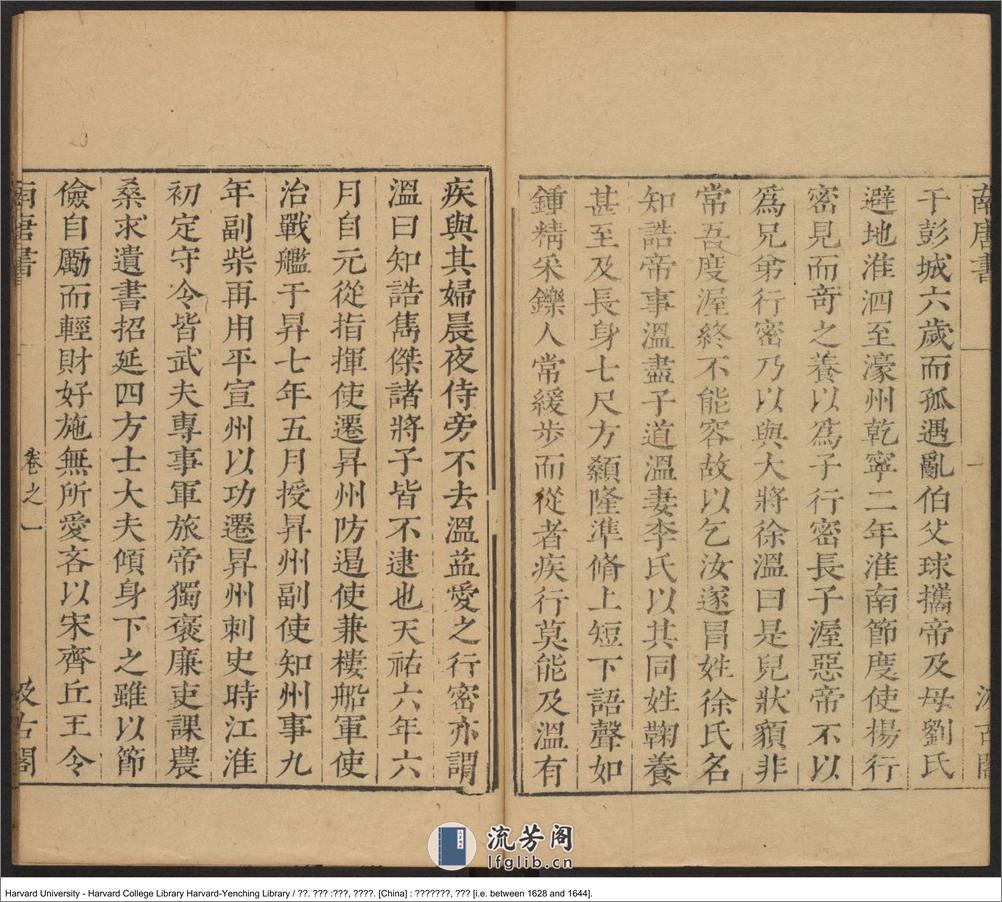 南唐書 一 汲古閣
于彭城六歲而孤遇亂伯父球攜帝及母劉氏
避地淮泗至濠州乾寧二年淮南節度使楊行
密見而奇之養以爲子行密長子渥惡帝不以
爲兄弟行密乃以與大將徐溫曰是兒狀貌非
常吾度渥終不能容故以乞汝遂冒姓徐氏名
知誥帝事溫盡子道溫妻李氏以其同姓鞠養
甚至及長身七尺方顙隆準脩上短下語聲如
鍾精采鑠人常緩步而從者疾行莫能及溫有
疾與其婦晨夜侍旁不去溫益愛之行密亦謂
溫曰知誥雋傑諸將子皆不逮也天祐六年六
月自元從指揮使遷昇州防遏使兼樓船軍使
治戰艦于昇七年五月授昇州副使知州事九
年副柴再用平宣州以功遷昇州刺史時江淮
初定守令皆武夫專事軍旅帝獨褒廉吏課農
桑求遺書招延四方士大夫傾身下之雖以節
儉自勵而輕財好施無所愛吝以宋齊丘王令
南唐書 卷之一 汲古閣
流芳阁
lfglib.cn
Harvard University - Harvard College Library Harvard-Yenching Library / ??. ??? :???, ????. [China] : ???????, ??? [i.e. between 1628 and 1644].